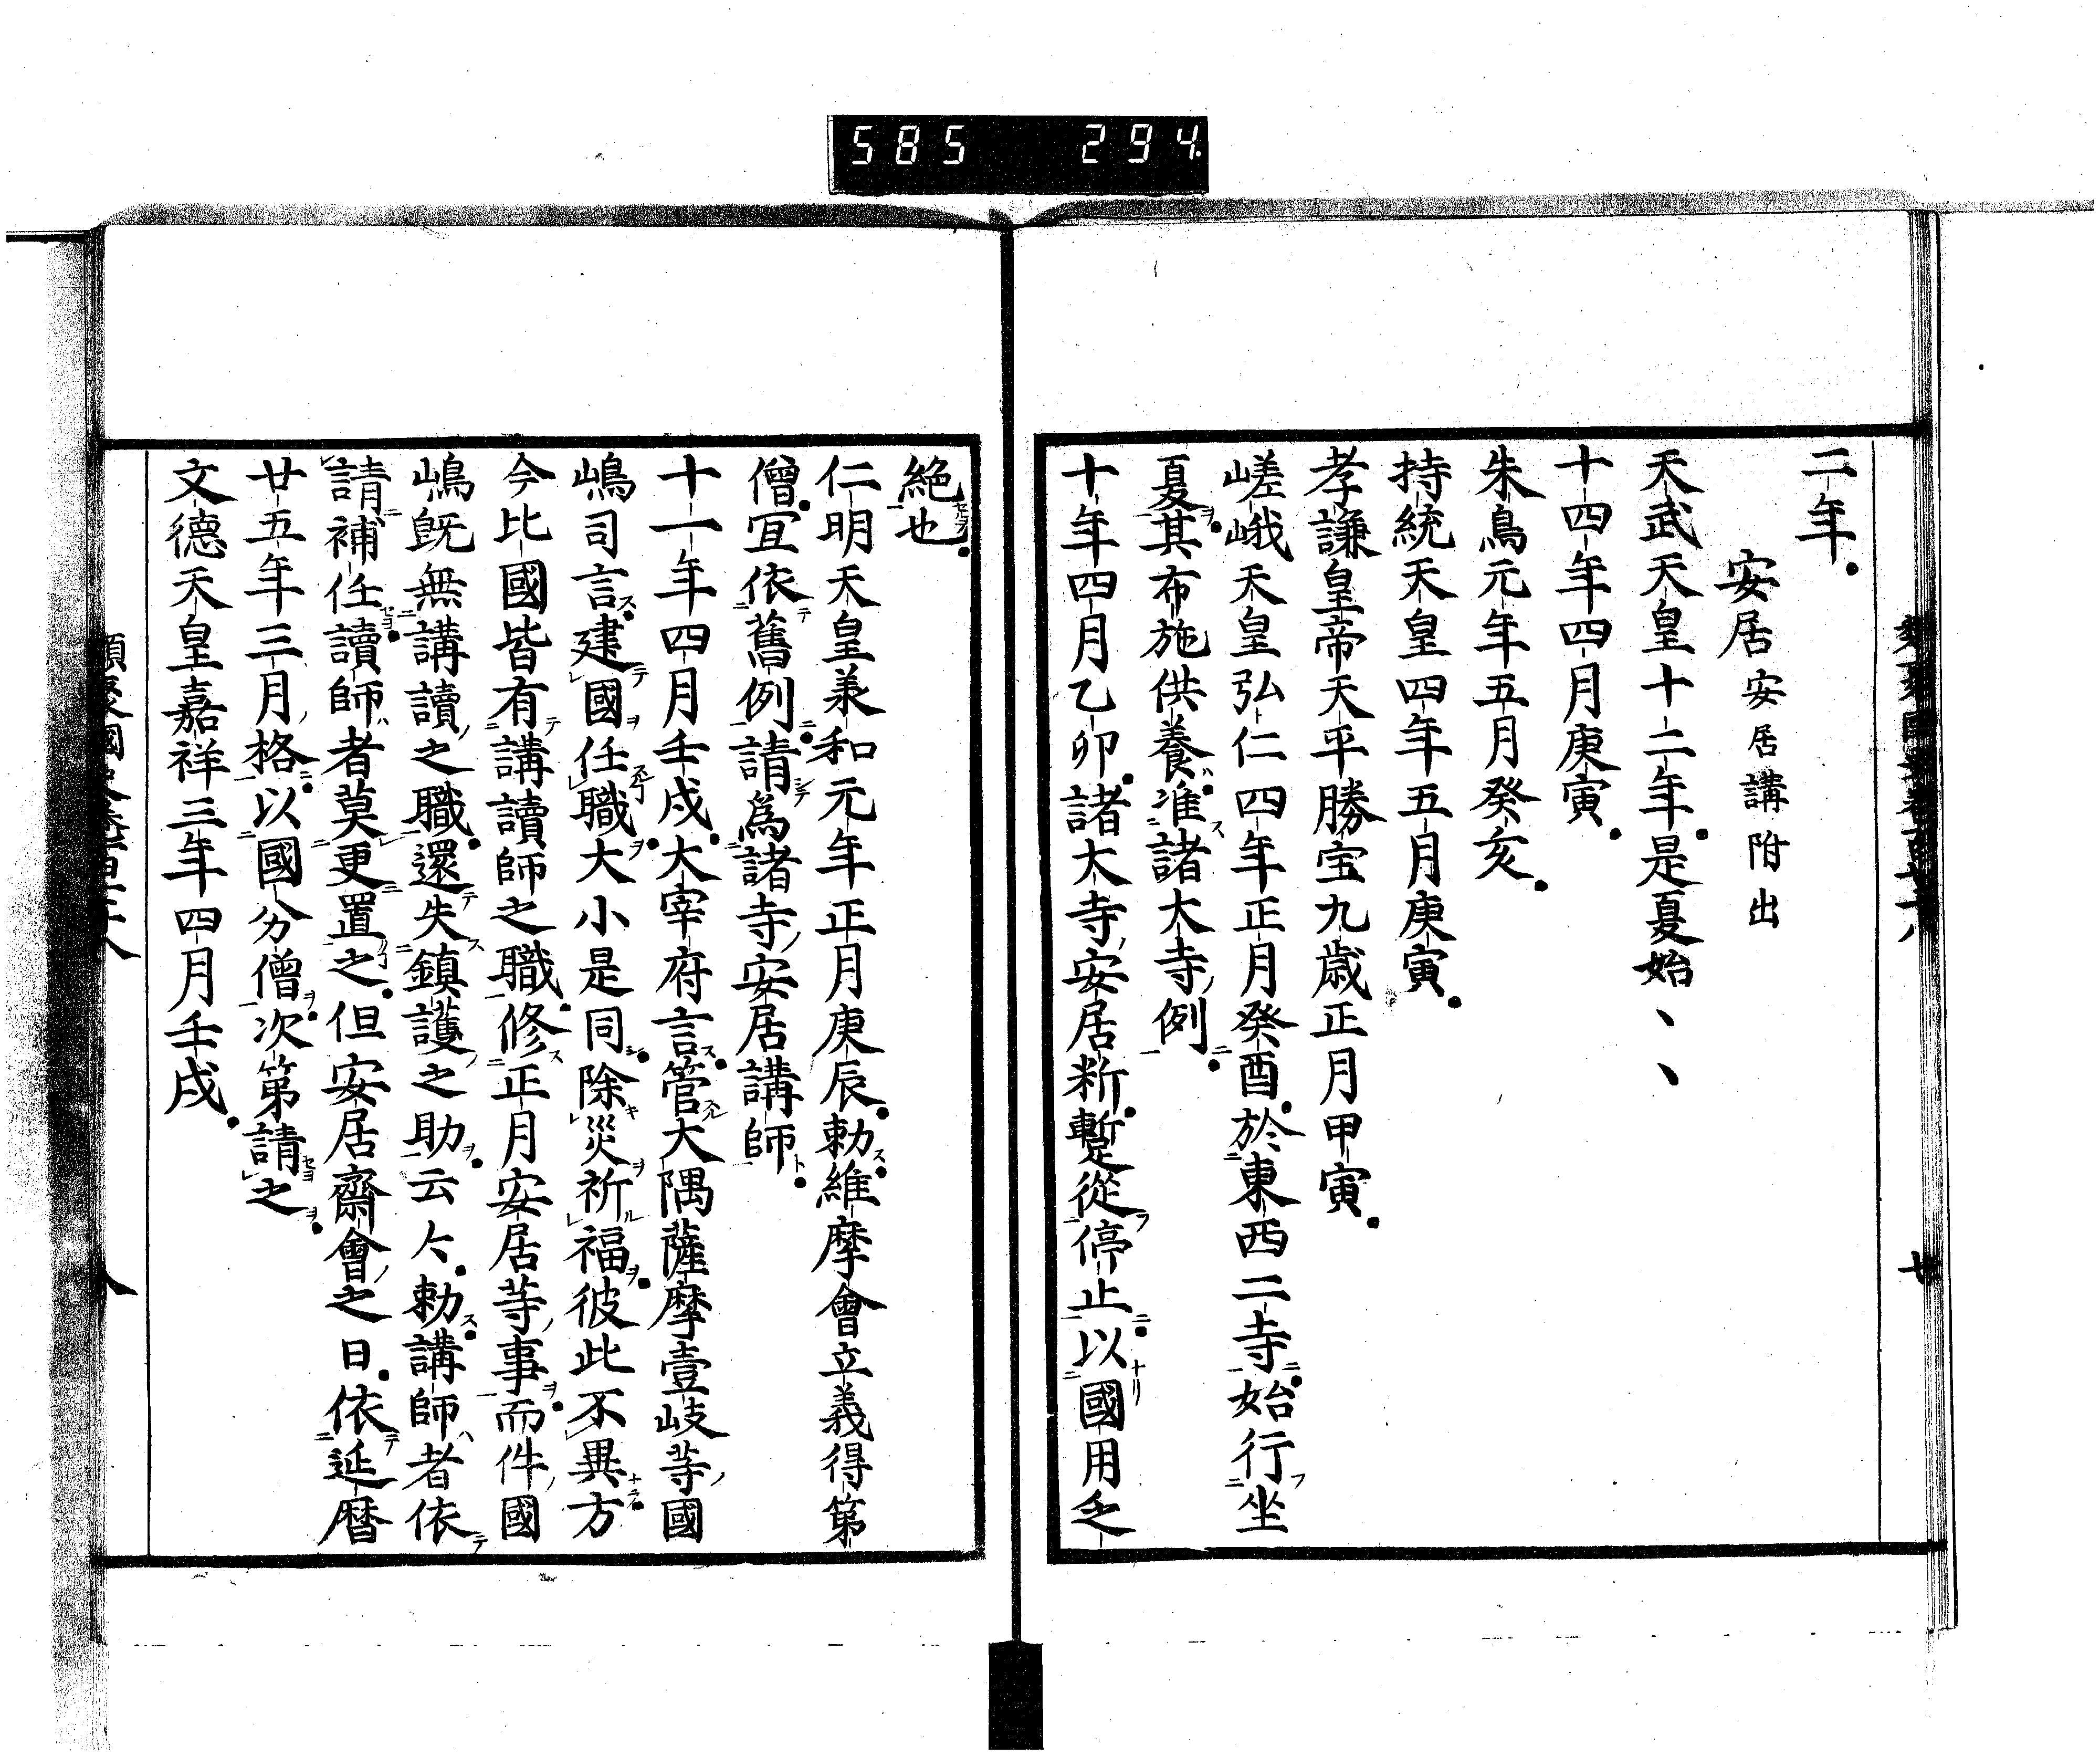 585 294
二年
安居安居講附出
天武天皇十二年是夏始、、
十四年四月庚寅
朱鳥元年五月癸亥
持統天皇四年五月庚寅
孝謙皇帝天平勝宝九歳正月甲寅
嵯峨天皇弘仁四年正月癸酉於東西二寺始行坐
夏其布施供養准諸大寺例
十年四月乙卯諸大寺安居料暫從停止以國用乏
絶也
仁明天皇羕和元年正月庚辰勅維摩會立義得第
僧宜依舊例請爲諸寺安居講師
十一年四月壬戌大宰府言管大隅薩摩壹岐等國
嶋司言建國任職大小是同除災祈福彼此不異方
今比國皆有講讀師之職修正月安居等事而件國
嶋既無講讀之職還失鎮護之助云々勅講師者依
請補任讀師者莫更置之但安居齋會之日依延暦
廿五年三月格以國分僧次第請之
文德天皇嘉祥三年四月壬戌